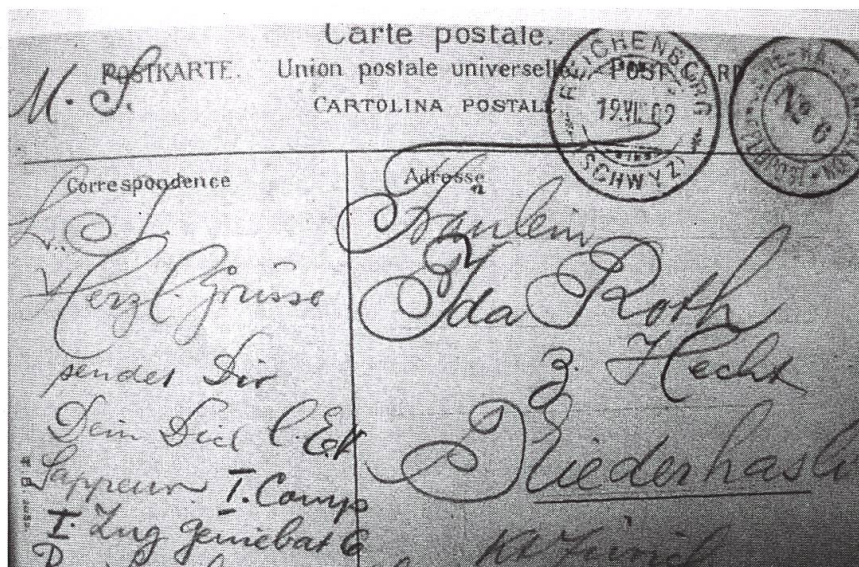 Carte postale.
POSTKARTE. Union postale universelle. POST
CARTOLINA POSTALE
M. S.
REICHENBURG
19.VII.09
(SCHWYZ)
No 6
FELDPOST
Correspondence
L. I.
Herzl. Grüsse
sendet Dir
Dein Dich l.
Sappeur I. Comp
I. Zug Geniebat 6
Adresse
Fräulein
Ida Roth
z. Hecht
Niederhasli
Kt Zürich